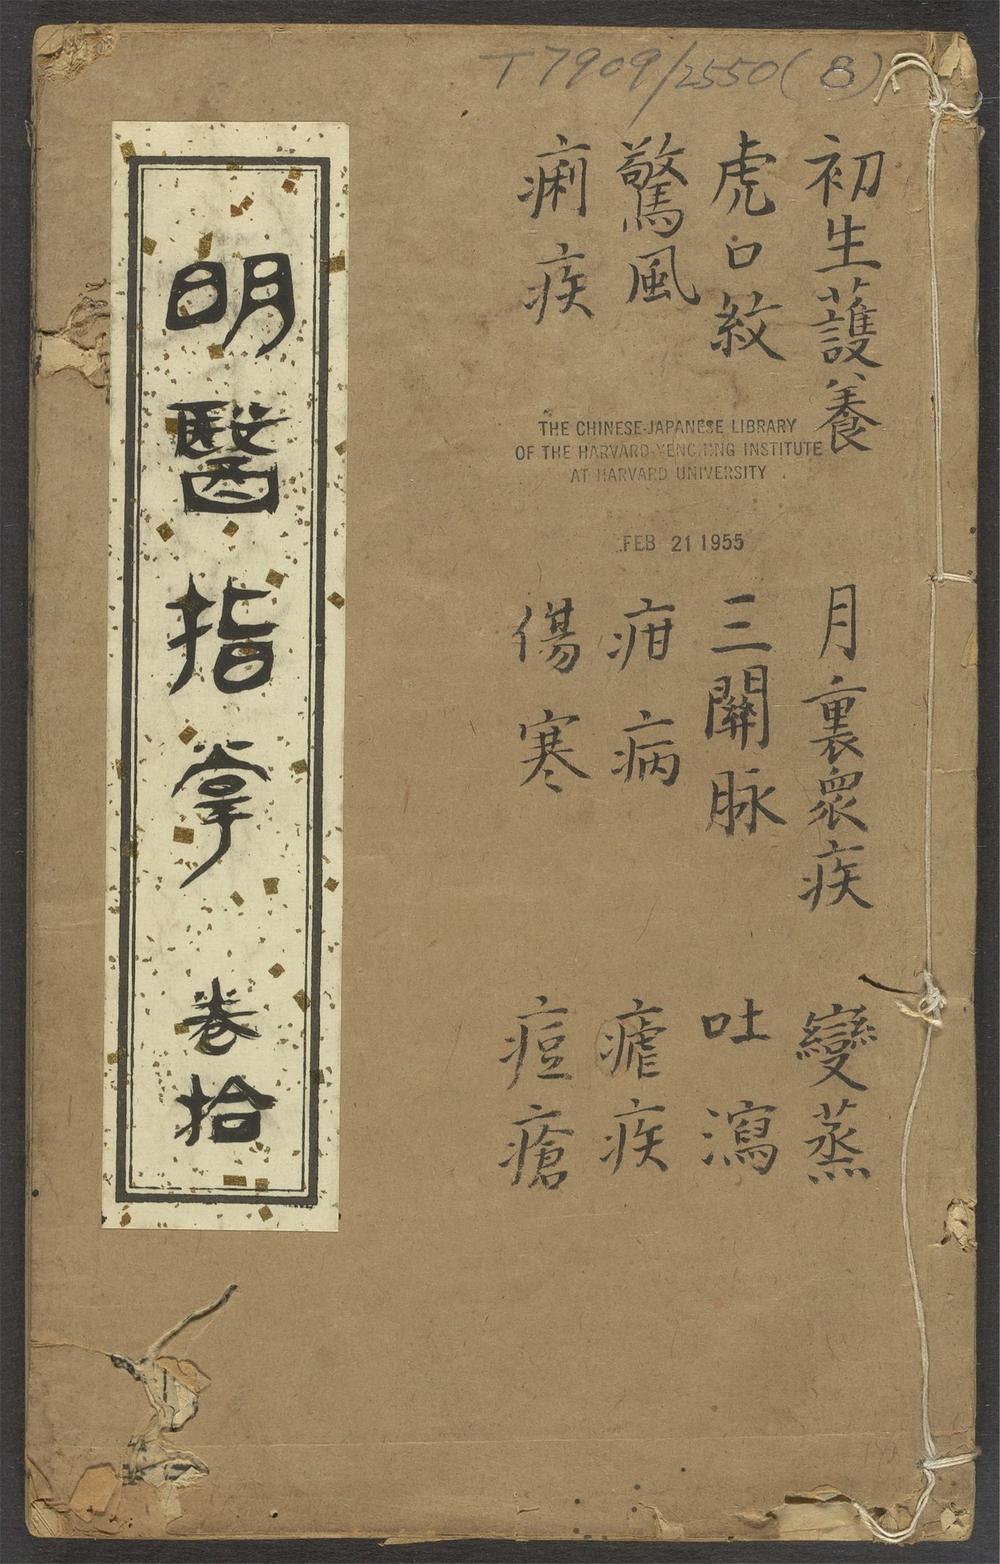 T7909/2550(8)
初生護養
月裏衆疾
變蒸
虎口紋
三關脉
吐瀉
驚風
疳病
瘧疾
痢疾
傷寒
痘瘡
THE CHINESE-JAPANESE LIBRARY
OF THE HARVARD-YENCHING INSTITUTE
AT HARVARD UNIVERSITY
FEB 21 1955
明醫指掌 卷拾